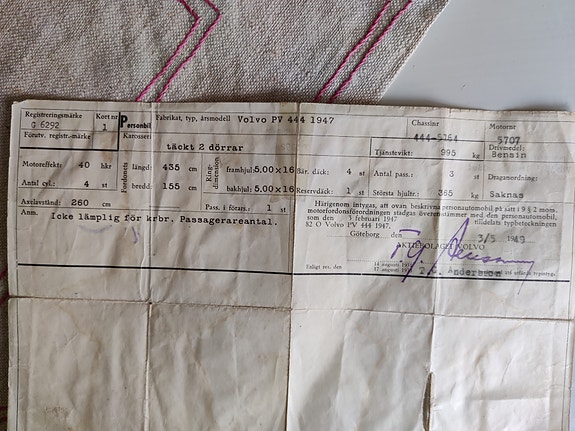 Registreringsmärke Kort nr Fabrikat, typ, årsmodell Volvo PV 444 1947 Chassinr Motornr
G 6292 1 Personbil 444-5764 5707
Förutv. registr.-märke Karosseri täckt 2 dörrar Tjänstevikt: 995 kg Drivmedel: Bensin
Motoreffekt: 40 hkr Fordonets längd: 435 cm Ringdimension framhjul: 5.00x16 Bär. däck: 4 st Ant. pass.: 3 st Draganordning:
Antal cyl.: 4 st bredd: 155 cm bakhjul: 5.00x16 Reservdäck 1 st Största hjultr.: 365 kg Saknas
Axelavstånd: 260 cm Pass. i förars.: 1 st
Anm. Icke lämplig för krbr. Passagerareantal.
Härigenom intygas, att ovan beskrivna personautomobil på sätt i 9 § 2 mom.
motorfordonsförordningen stadgas överensstämmer med den personautomobil,
som den 3 februari 1947 tilldelats typbeteckningen
82 O Volvo PV 444 1947.
Göteborg den 3/5 1949
AKTIEBOLAGET VOLVO
Enligt res. den
T.G. Andersson